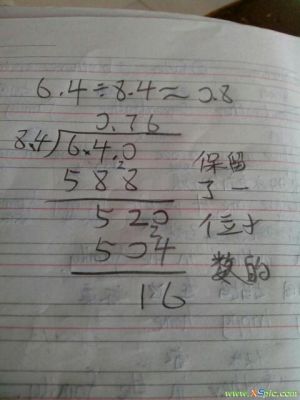 6.4÷8.4≈0.8
0.76
8.4)6.4.0
588
520
504
16
保留
了一
位小
数的
www.XSpic.com